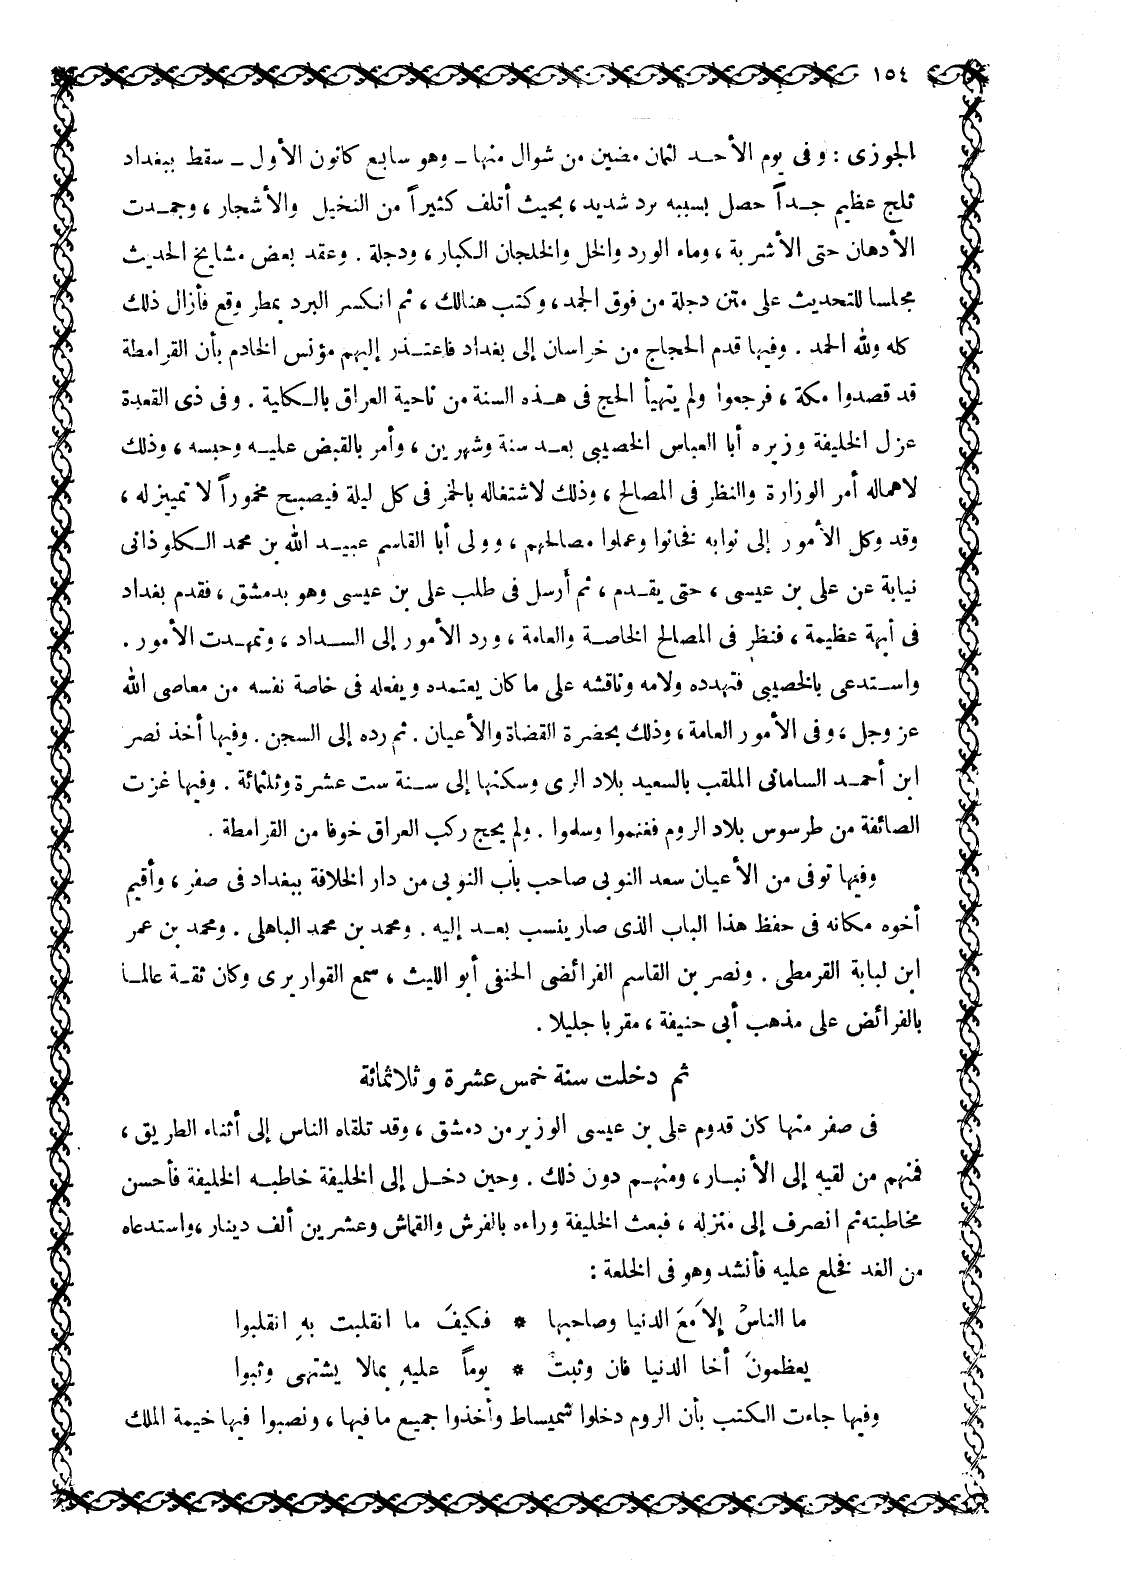 ١٥٤
الجوزى : وفى يوم الأحد لثمان مضين من شوال منها ـ وهو سابع كانون الأول ـ سقط ببغداد
ثلج عظيم جداً حصل بسببه برد شديد ، بحيث أتلف كثيراً من النخيل والأشجار ، وجمدت
الأدهان حتى الأشربة ، وماء الورد والخل والخلجان الكبار ، ودجلة . وعقد بعض مشايخ الحديث
مجلسا للتحديث على متن دجلة من فوق الجمد ، وكتب هنالك ، ثم انكسر البرد بمطر وقع فأزال ذلك
كله ولله الحمد . وفيها قدم الحجاج من خراسان إلى بغداد فاعتذر إليهم مؤنس الخادم بأن القرامطة
قد قصدوا مكة ، فرجعوا ولم يتهيأ الحج فى هذه السنة من ناحية العراق بالكلية . وفى ذى القعدة
عزل الخليفة وزيره أبا العباس الخصيبى بعد سنة وشهرين ، وأمر بالقبض عليه وحبسه ، وذلك
لاهماله أمر الوزارة والنظر فى المصالح ، وذلك لاشتغاله بالخمر فى كل ليلة فيصبح مخموراً لا تمييز له ،
وقد وكل الأمور إلى نوابه فخانوا وعملوا مصالحهم ، وولى أبا القاسم عبيد الله بن محمد الكلوذانى
نيابة عن على بن عيسى ، حتى يقدم ، ثم أرسل فى طلب على بن عيسى وهو بدمشق ، فقدم بغداد
فى أبهة عظيمة ، فنظر فى المصالح الخاصة والعامة ، ورد الأمور إلى السداد ، وتمهدت الأمور .
واستدعى بالخصيبى فتهدده ولامه وناقشه على ما كان يعتمده ويفعله فى خاصة نفسه من معاصى الله
عز وجل ، وفى الأمور العامة ، وذلك بحضرة القضاة والأعيان . ثم رده إلى السجن . وفيها أخذ نصر
ابن أحمد السامانى الملقب بالسعيد بلاد الرى وسكنها إلى سنة ست عشرة وثلثمائة . وفيها غزت
الصائفة من طرسوس بلاد الروم فغنموا وسلموا . ولم يحج ركب العراق خوفا من القرامطة .
وفيها توفى من الأعيان سعد النوبى صاحب باب النوبى من دار الخلافة ببغداد فى صفر ، وأقيم
أخوه مكانه فى حفظ هذا الباب الذى صار ينسب بعد إليه . ومحمد بن محمد الباهلى . ومحمد بن عمر
ابن لبابة القرمطى . ونصر بن القاسم الفرائضى الحنفى أبو الليث ، سمع القواريرى وكان ثقة عالما
بالفرائض على مذهب أبى حنيفة ، مقربا جليلا .
ثم دخلت سنة خمس عشرة وثلاثمائة
فى صفر منها كان قدوم على بن عيسى الوزير من دمشق ، وقد تلقاه الناس إلى أثناء الطريق ،
فمنهم من لقيه إلى الأنبار ، ومنهم دون ذلك . وحين دخل إلى الخليفة خاطبه الخليفة فأحسن
مخاطبته ثم انصرف إلى منزله ، فبعث الخليفة وراءه بالفرش والقماش وعشرين ألف دينار ، واستدعاه
من الغد فخلع عليه فأنشد وهو فى الخلعة :
ما الناسُ إلا مَعَ الدنيا وصاحبها * فكيفَ ما انقلبت بهِ انقلبوا
يعظمونَ أخا الدنيا فان وثبتْ * يوماً عليهِ بمالا يشتهى وثبوا
وفيها جاءت الكتب بأن الروم دخلوا شميساط وأخذوا جميع ما فيها ، ونصبوا فيها خيمة الملك